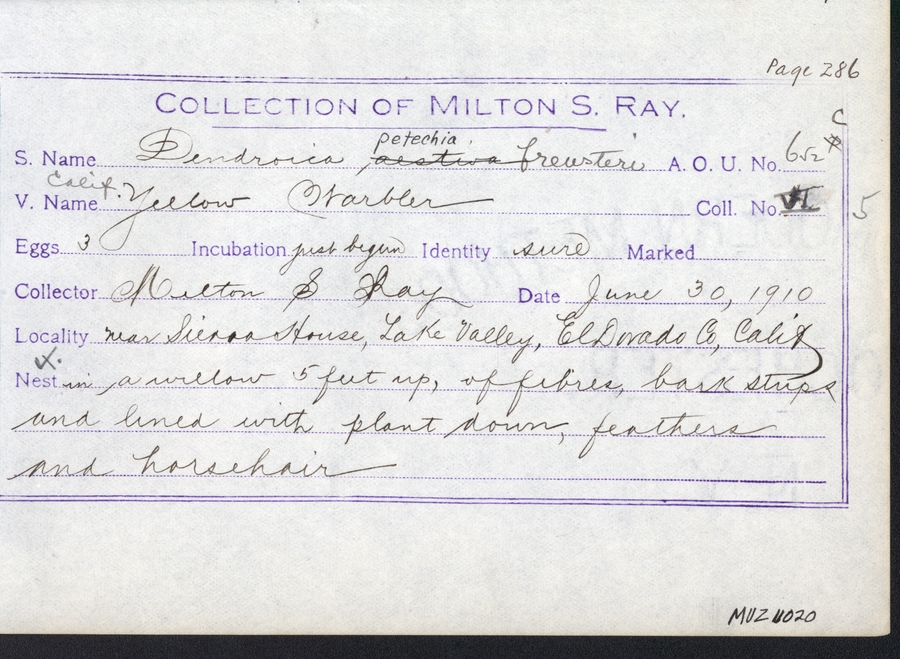 Page 286
COLLECTION OF MILTON S. RAY.
S. Name Dendroica petechia aestiva brewsteri A. O. U. No. 652 c
Calif.
V. Name Yellow Warbler Coll. No. VI 5
Eggs 3 Incubation just begun Identity sure Marked
Collector Milton S Ray Date June 30, 1910
Locality near Sierra House, Lake Valley, El Dorado Co, Calif
Nest in a willow 5 feet up, of fibres, bark strips
and lined with plant down, feathers
and horsehair
MVZ 11020